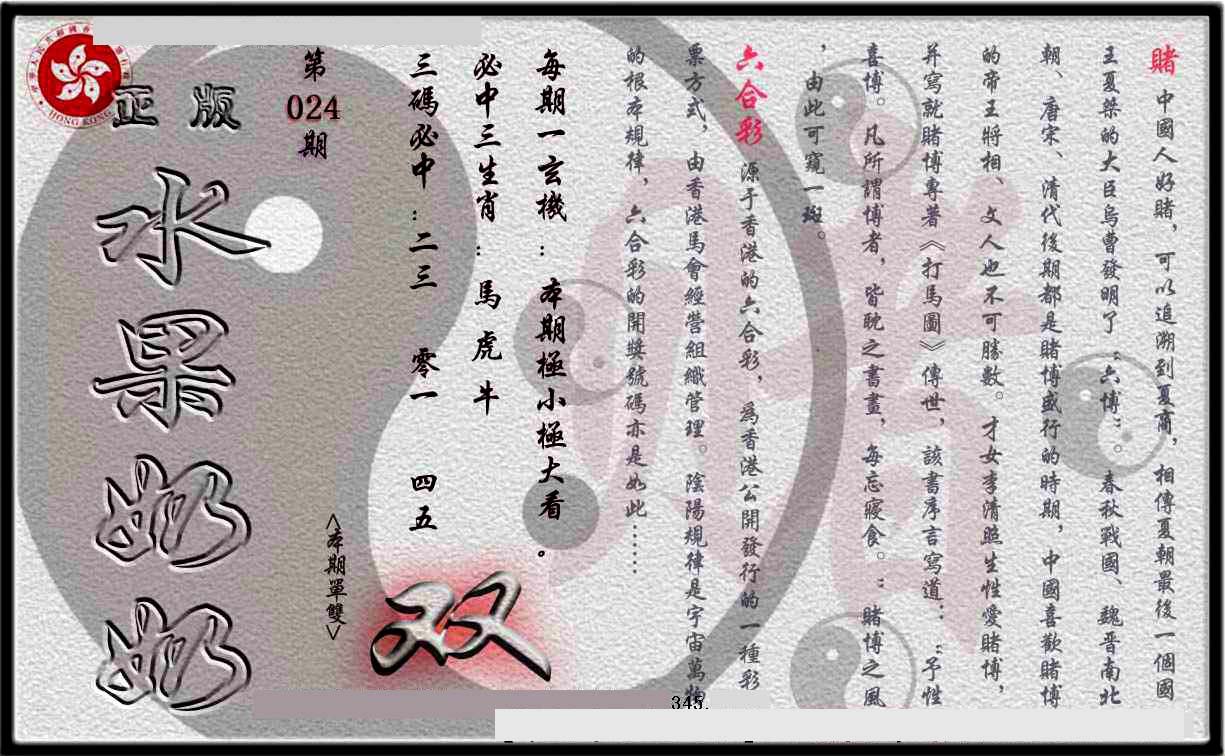 賭 中國人好賭，可以追溯到夏商，相傳夏朝最後一個國
王夏桀的大臣烏曹發明了“六博”。春秋戰國、魏晋南北
朝、唐宋、清代後期都是賭博盛行的時期，中國喜歡賭博
的帝王將相、文人也不可勝數。才女李清照生性愛賭博，
并寫就賭博專著《打馬圖》傳世，該書序言寫道：“予性
喜博。凡所謂博者，皆耽之書畫，每忘寢食。：賭博之風
，由此可窺一斑。
六合彩 源于香港的六合彩，爲香港公開發行的一種彩
票方式，由香港馬會經營組織管理。陰陽規律是宇宙萬物
的根本規律，六合彩的開獎號碼亦是如此……
每期一玄機：本期極小極大看。
必中三生肖：馬虎牛
三碼必中：二三 零一 四五
<本期單雙>
双
第
024
期
正版
水果奶奶
HONG KONG
345.